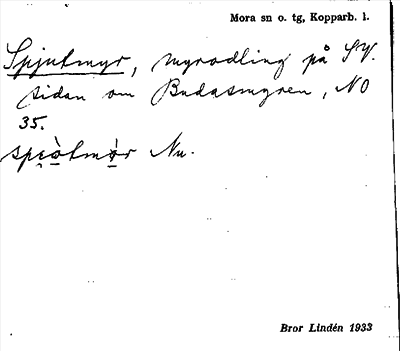 Mora sn o. tg, Kopparb. l.
Spjutmyr, myrodling på SV.
sidan om Budasmyren, NO
35.
spe̯òtmø̀r Nu.
Bror Lindén 1933